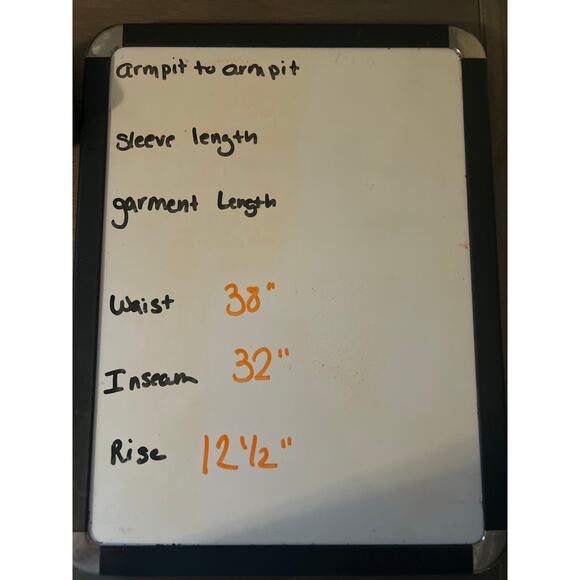 armpit to armpit
sleeve length
garment Length
Waist 38"
Inseam 32"
Rise 12 1/2"